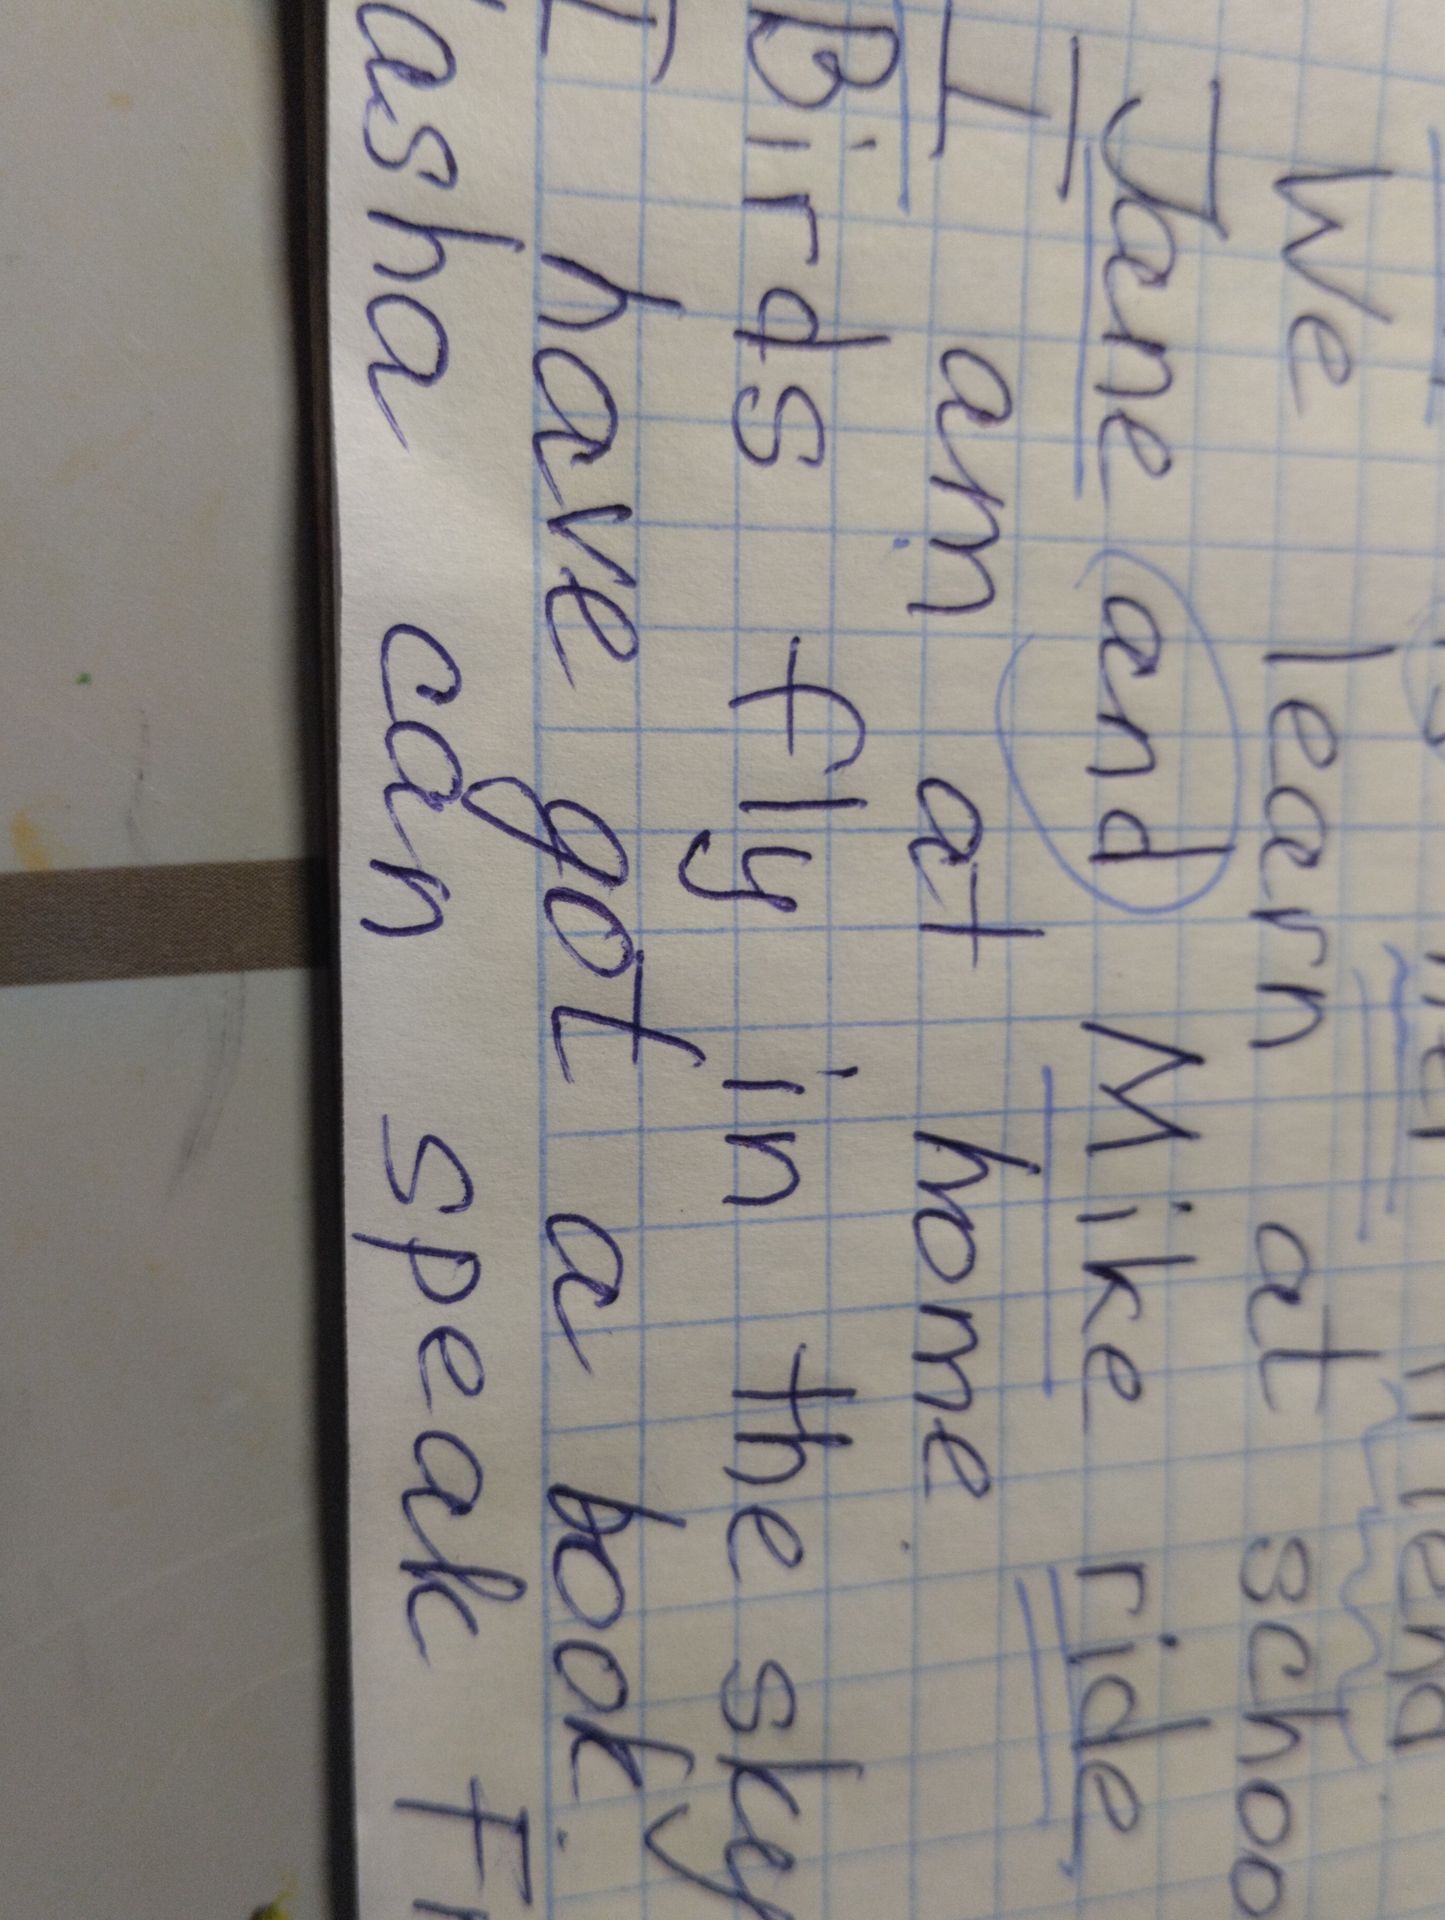 We learn at schoo
Jane and Mike ride
I am at home
Birds fly in the sky
I have got a book.
asha can speak